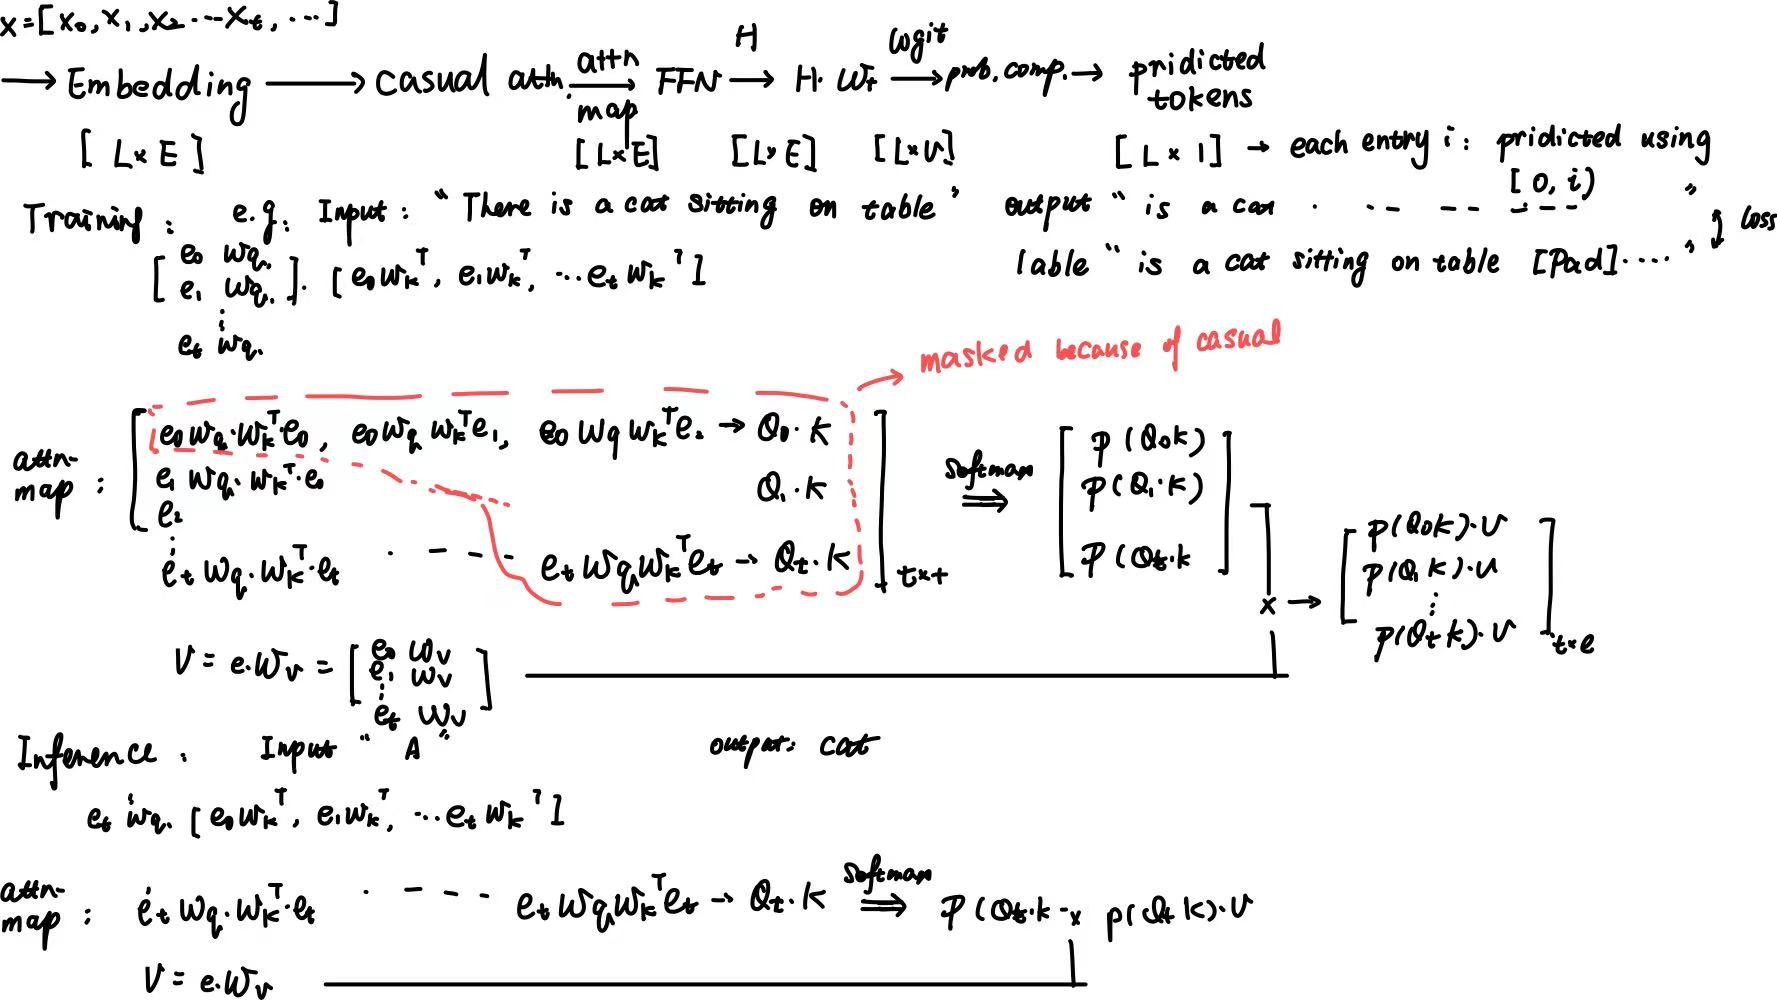 x = [x₀, x₁, x₂ ... xₜ, ...]
→ Embedding → casual attn. attn map → FFN H → H · Wₜ logit → prob. comp. → pridicted tokens
[L×E] [L×E] [L×E] [L×V] [L×1] → each entry i: pridicted using [0, i)
Training: e.g. Input: "There is a cat sitting on table" output "is a cat · -- -- -- ---"
lable "is a cat sitting on table [Pad]...." loss
[e₀ Wq. e₁ Wq. ⋮ eₜ Wq.] · [e₀Wₖᵀ, e₁Wₖᵀ, ...eₜWₖᵀ]
masked because of casual
attn-map: [e₀Wq·Wₖᵀ·e₀, e₀Wq Wₖᵀe₁, e₀WqWₖᵀe₂ → Q₀·K
e₁Wq·Wₖᵀ·e₀ Q₁·K
e₂
⋮
eₜWq·Wₖᵀ·eₜ · - - - eₜWqWₖᵀeₜ → Qₜ·K] t×t
softmax ⇒ [p(Q₀K) p(Q₁·K) p(Qₜ·K] × → [p(Q₀K)·V p(Q₁K)·V ⋮ p(QₜK)·V] t×e
V = e·Wᵥ = [e₀ Wᵥ e₁ Wᵥ ⋮ eₜ Wᵥ]
Inference: Input "A" output: cat
eₜ Wq. [e₀Wₖᵀ, e₁Wₖᵀ, ...eₜWₖᵀ]
attn-map: eₜWq·Wₖᵀ·eₜ · - - - eₜWqWₖᵀeₜ → Qₜ·K softmax ⇒ p(Qₜ·K → × p(QₜK)·V
V = e·Wᵥ